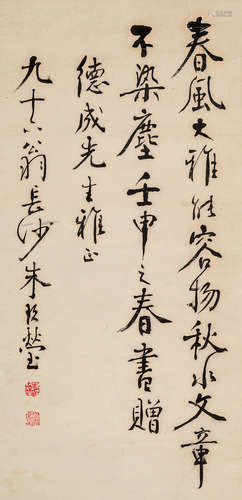 春風大雅能容物秋水文章
不染塵壬申之春書贈
德成先生雅正
九十六翁長沙朱玖瑩